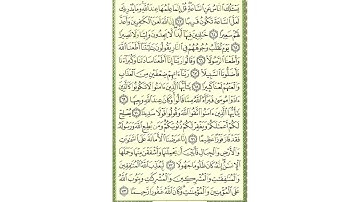 يَسْـَٔلُكَ ٱلنَّاسُ عَنِ ٱلسَّاعَةِ قُلْ إِنَّمَا عِلْمُهَا عِندَ ٱللَّهِ وَمَا يُدْرِيكَ
لَعَلَّ ٱلسَّاعَةَ تَكُونُ قَرِيبًا ٦٣ إِنَّ ٱللَّهَ لَعَنَ ٱلْكَٰفِرِينَ وَأَعَدَّ
لَهُمْ سَعِيرًا ٦٤ خَٰلِدِينَ فِيهَآ أَبَدًا لَّا يَجِدُونَ وَلِيًّا وَلَا نَصِيرًا
٦٥ يَوْمَ تُقَلَّبُ وُجُوهُهُمْ فِى ٱلنَّارِ يَقُولُونَ يَٰلَيْتَنَآ أَطَعْنَا ٱللَّهَ
وَأَطَعْنَا ٱلرَّسُولَا۠ ٦٦ وَقَالُوا۟ رَبَّنَآ إِنَّآ أَطَعْنَا سَادَتَنَا وَكُبَرَآءَنَا
فَأَضَلُّونَا ٱلسَّبِيلَا۠ ٦٧ رَبَّنَآ ءَاتِهِمْ ضِعْفَيْنِ مِنَ ٱلْعَذَابِ
وَٱلْعَنْهُمْ لَعْنًا كَبِيرًا ٦٨ يَٰٓأَيُّهَا ٱلَّذِينَ ءَامَنُوا۟ لَا تَكُونُوا۟ كَٱلَّذِينَ
ءَاذَوْا۟ مُوسَىٰ فَبَرَّأَهُ ٱللَّهُ مِمَّا قَالُوا۟ وَكَانَ عِندَ ٱللَّهِ وَجِيهًا
٦٩ يَٰٓأَيُّهَا ٱلَّذِينَ ءَامَنُوا۟ ٱتَّقُوا۟ ٱللَّهَ وَقُولُوا۟ قَوْلًا سَدِيدًا ٧٠ يُصْلِحْ
لَكُمْ أَعْمَٰلَكُمْ وَيَغْفِرْ لَكُمْ ذُنُوبَكُمْ وَمَن يُطِعِ ٱللَّهَ وَرَسُولَهُۥ
فَقَدْ فَازَ فَوْزًا عَظِيمًا ٧١ إِنَّا عَرَضْنَا ٱلْأَمَانَةَ عَلَى ٱلسَّمَٰوَٰتِ
وَٱلْأَرْضِ وَٱلْجِبَالِ فَأَبَيْنَ أَن يَحْمِلْنَهَا وَأَشْفَقْنَ مِنْهَا وَحَمَلَهَا
ٱلْإِنسَٰنُ إِنَّهُۥ كَانَ ظَلُومًا جَهُولًا ٧٢ لِّيُعَذِّبَ ٱللَّهُ ٱلْمُنَٰفِقِينَ
وَٱلْمُنَٰفِقَٰتِ وَٱلْمُشْرِكِينَ وَٱلْمُشْرِكَٰتِ وَيَتُوبَ ٱللَّهُ
عَلَى ٱلْمُؤْمِنِينَ وَٱلْمُؤْمِنَٰتِ وَكَانَ ٱللَّهُ غَفُورًا رَّحِيمًۢا ٧٣